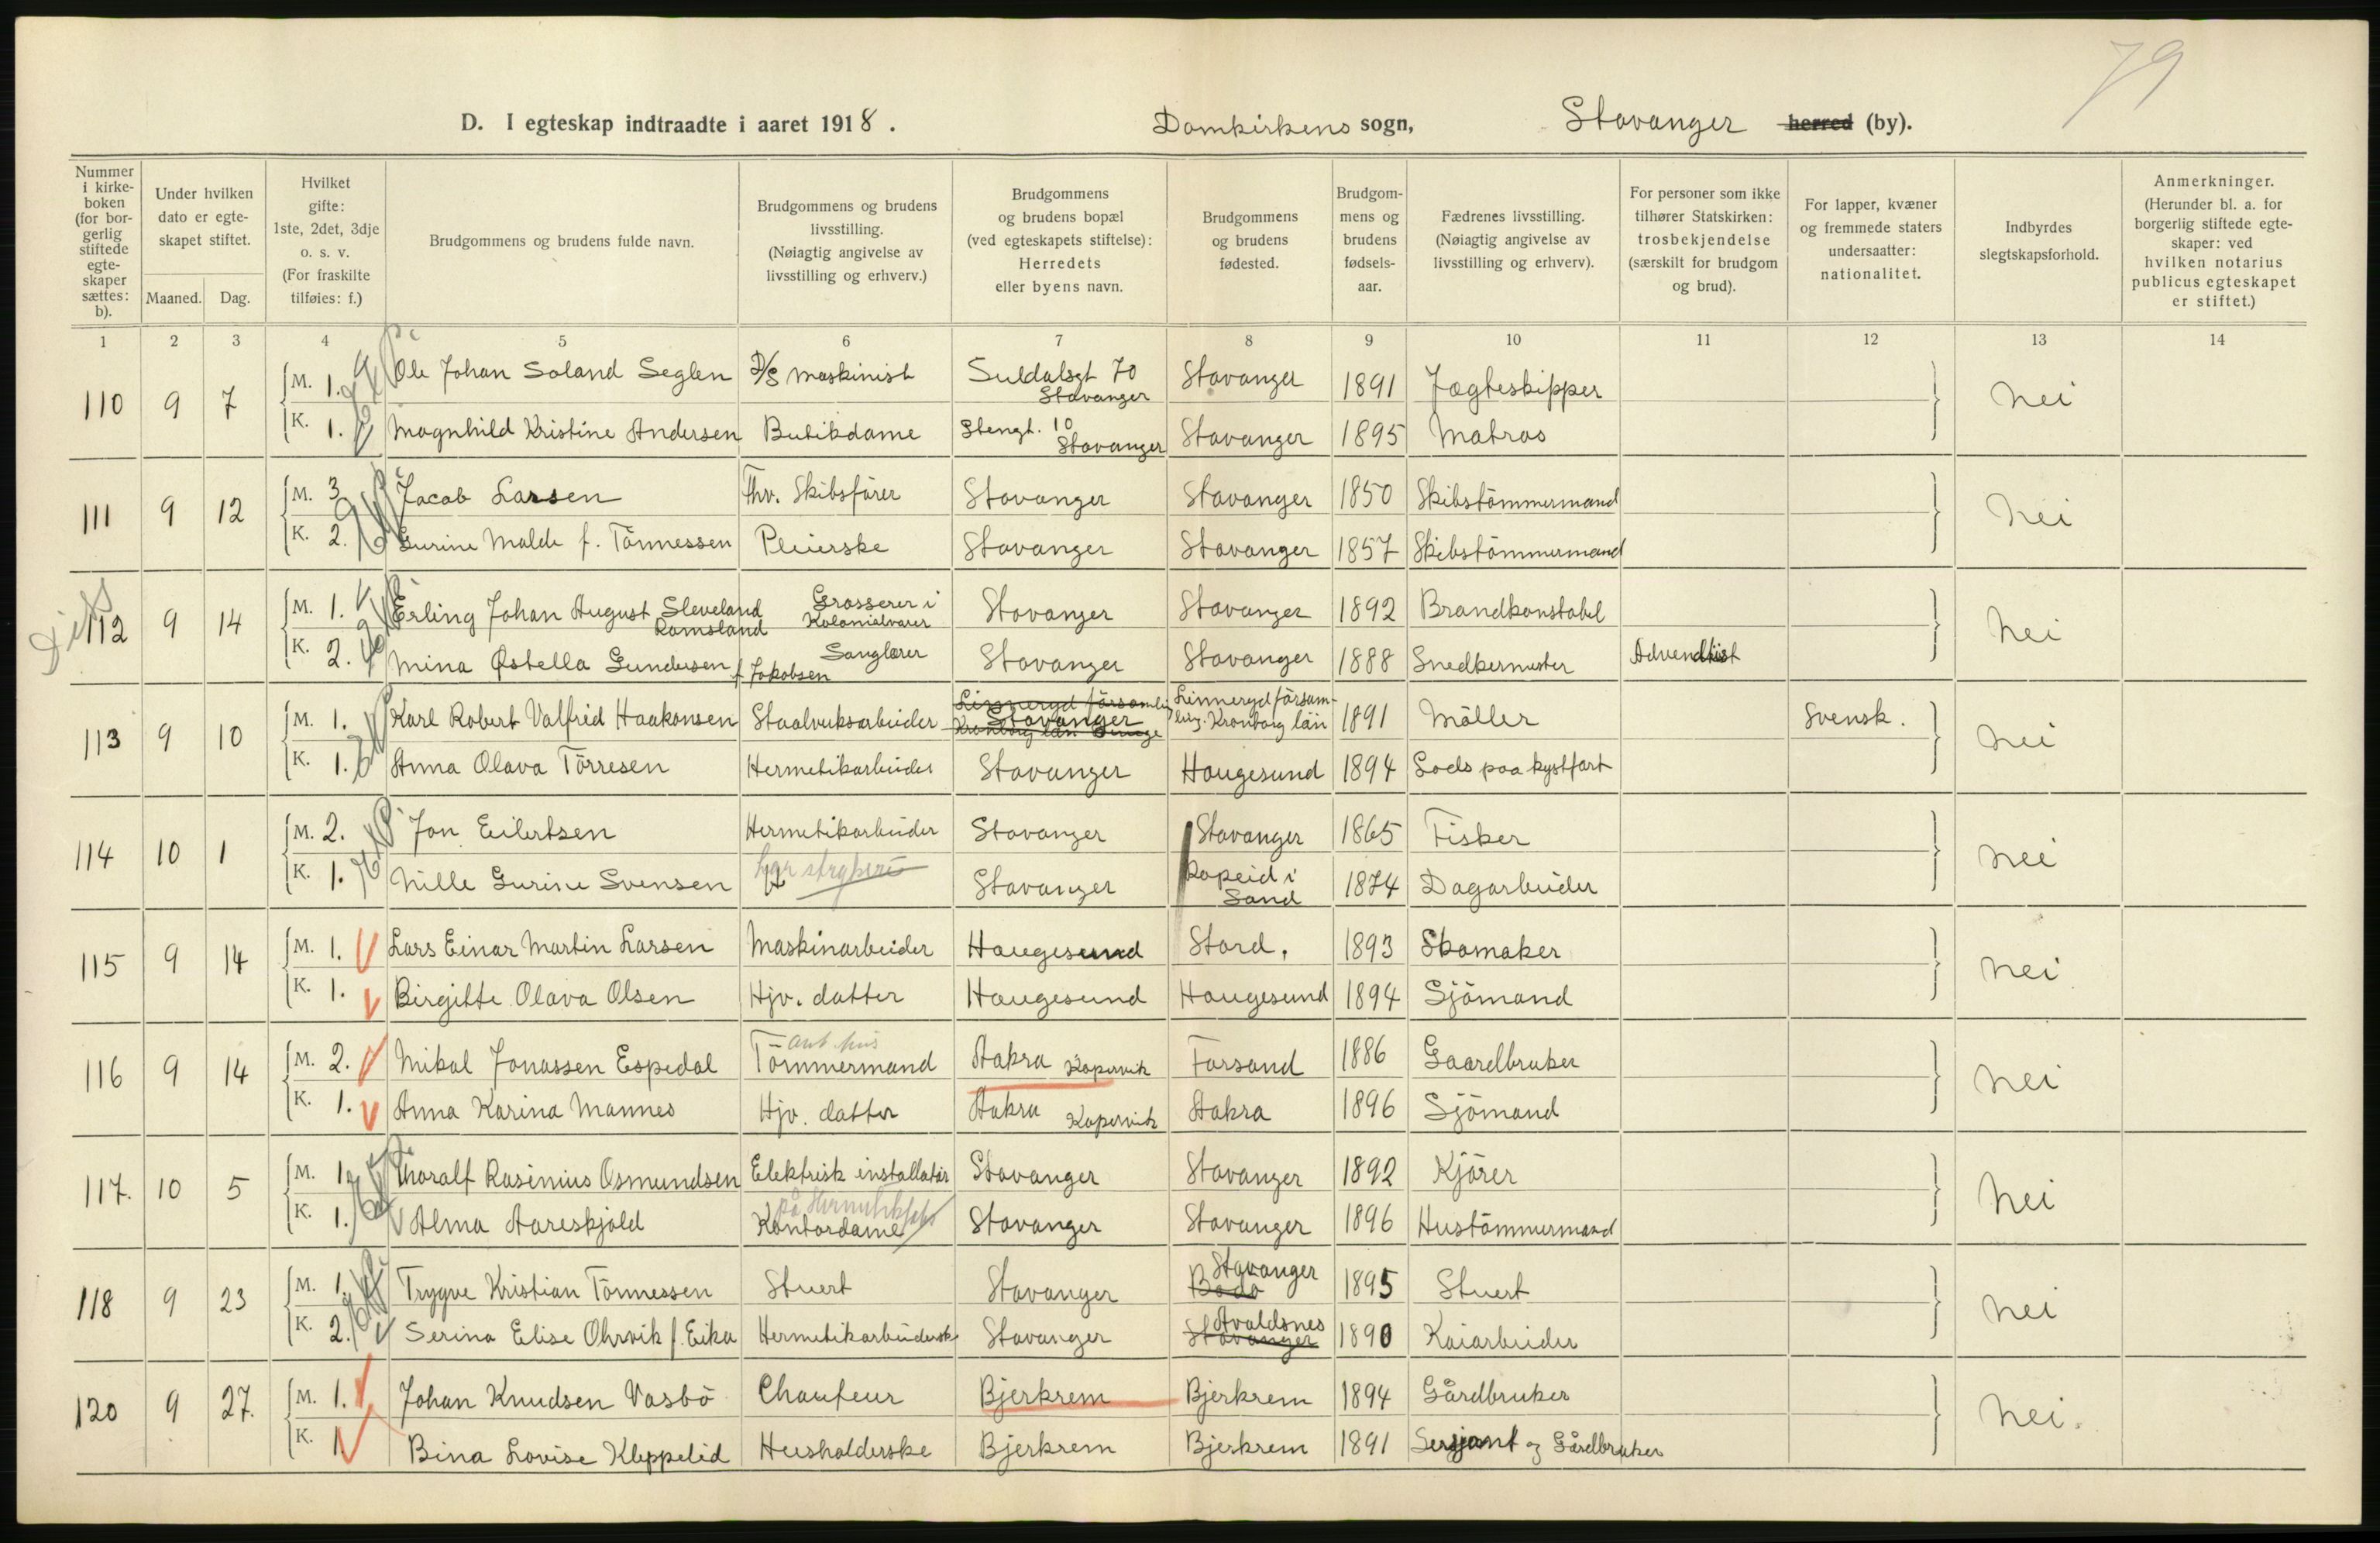 79
D. I egteskap indtraadte i aaret 1918. Domkirkens sogn, Stavanger herred (by).
Nummer i kirkeboken (for borgerlig stiftede egteskaper sættes: b).
Under hvilken dato er egteskapet stiftet.
Maaned. Dag.
Hvilket gifte: 1ste, 2det, 3dje o. s. v. (For fraskilte tilføies: f.)
Brudgommens og brudens fulde navn.
Brudgommens og brudens livsstilling. (Nøiagtig angivelse av livsstilling og erhverv.)
Brudgommens og brudens bopæl (ved egteskapets stiftelse): Herredets eller byens navn.
Brudgommens og brudens fødested.
Brudgommens og brudens fødselsaar.
Fædrenes livsstilling. (Nøiagtig angivelse av livsstilling og erhverv).
For personer som ikke tilhører Statskirken: trosbekjendelse (særskilt for brudgom og brud).
For lapper, kvæner og fremmede staters undersaatter: nationalitet.
Indbyrdes slegtskapsforhold.
Anmerkninger. (Herunder bl. a. for borgerlig stiftede egteskaper: ved hvilken notarius publicus egteskapet er stiftet.)
1 2 3 4 5 6 7 8 9 10 11 12 13 14
110 9 7 M. 1. Ole Johan Soland Seglen D/S Maskinist Suldalsgt 70 Stavanger Stavanger 1891 Jægteskipper nei
K. 1. Magnhild Kristine Andersen Butikdame Stengt. 10 Stavanger Stavanger 1895 Matros
111 9 12 M. 3 Jacob Larsen Fhv. Skibsfører Stavanger Stavanger 1850 Skibstömmermand nei
K. 2. Gurine Malde f. Tönnessen Pleierske Stavanger Stavanger 1857 Skibstömmermand
112 9 14 M. 1. Erling Johan August Sleveland Ramsland Grosserer i Kolonialvarer Stavanger Stavanger 1892 Brandkonstabel nei
K. 2. Mina Østella Gundersen f. Jakobsen Sanglærer Stavanger Stavanger 1888 Snedkermester Advendtist
113 9 10 M. 1. Karl Robert Valfrid Haakonsen Staalverksarbeider Linneryd församling Kronborg län Stavanger Linneryd församling. Kronborg län 1891 Möller Svensk. nei
K. 1. Anna Olava Törresen Hermetikarbeider Stavanger Haugesund 1894 Lods paa kystfart
114 10 1 M. 2. Jon Eilertsen Hermetikarbeider Stavanger Stavanger 1865 Fisker nei
K. 1. Nille Gurine Svensen har strykeri Stavanger Ropeid i Sand 1874 Dagarbeider
115 9 14 M. 1. Lars Einar Martin Larsen Maskinarbeider Haugesund Stord. 1893 Skomaker nei
K. 1. Birgitte Olava Olsen Hjv. datter Haugesund Haugesund 1894 Sjömand
116 9 14 M. 2. Mikal Jonassen Espedal Tömmermand Aakra Kopervik Forsand 1886 Gaardbruker nei
K. 1. Anna Karina Mannes Hjv. datter Aakra Kopervik Aakra 1896 Sjömand
117. 10 5 M. 1. Thoralf Rasinius Osmundsen Elektrisk installatör Stavanger Stavanger 1892 Kjörer nei
K. 1. Alma Aareskjold på Hermetikfabr Kontordame Stavanger Stavanger 1896 Hustömmermand
118 9 23 M. 1. Trygve Kristian Tönnessen Stuert Stavanger Bodö Stavanger 1895 Stuert nei
K. 2. Serina Elise Ohrvik f. Eika Hermetikarbeiderske Stavanger Stavanger Avaldsnes 1890 Kaiarbeider
120 9 27. M. 1. Johan Knudsen Vasbö Chaufeur Bjerkrem Bjerkrem 1894 Gårdbruker nei.
K. 1 Bina Lovise Kleppelid Husholderske Bjerkrem Bjerkrem 1891 Sersjant og Gårdbruker